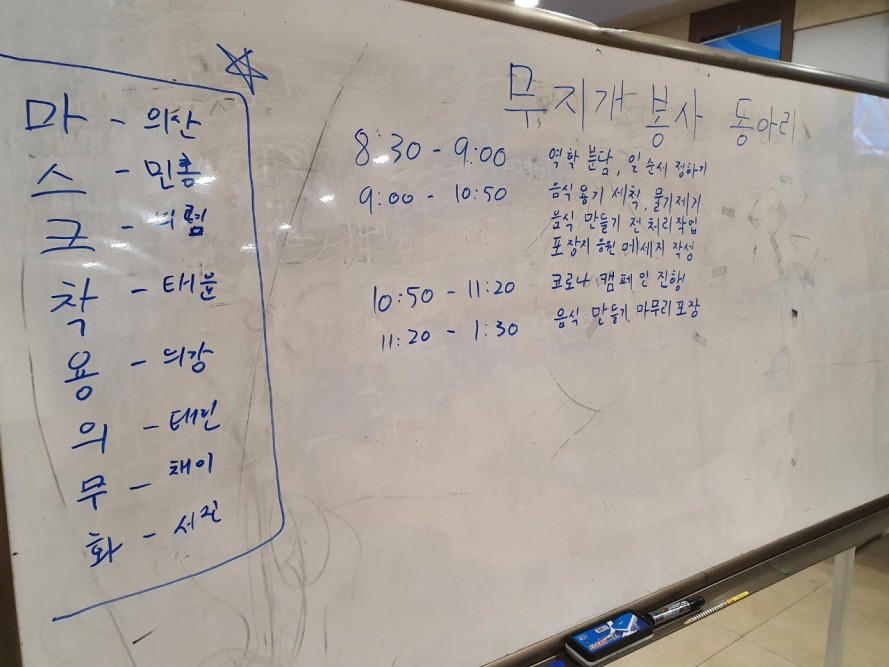 마 - 의산
스 - 민홍
크 - 의렴
착 - 태윤
용 - 의강
의 - 태인
무 - 채이
화 - 서진
무지개 봉사 동아리
8:30 - 9:00 역학 분담, 일 순서 정하기
9:00 - 10:50 음식 용기 세척, 물기제거
음식 만들기 전 처리작업
포장지 응원 메세지 작성
10:50 - 11:20 코로나 캠페인 진행
11:20 - 1:30 음식 만들기, 마무리 포장